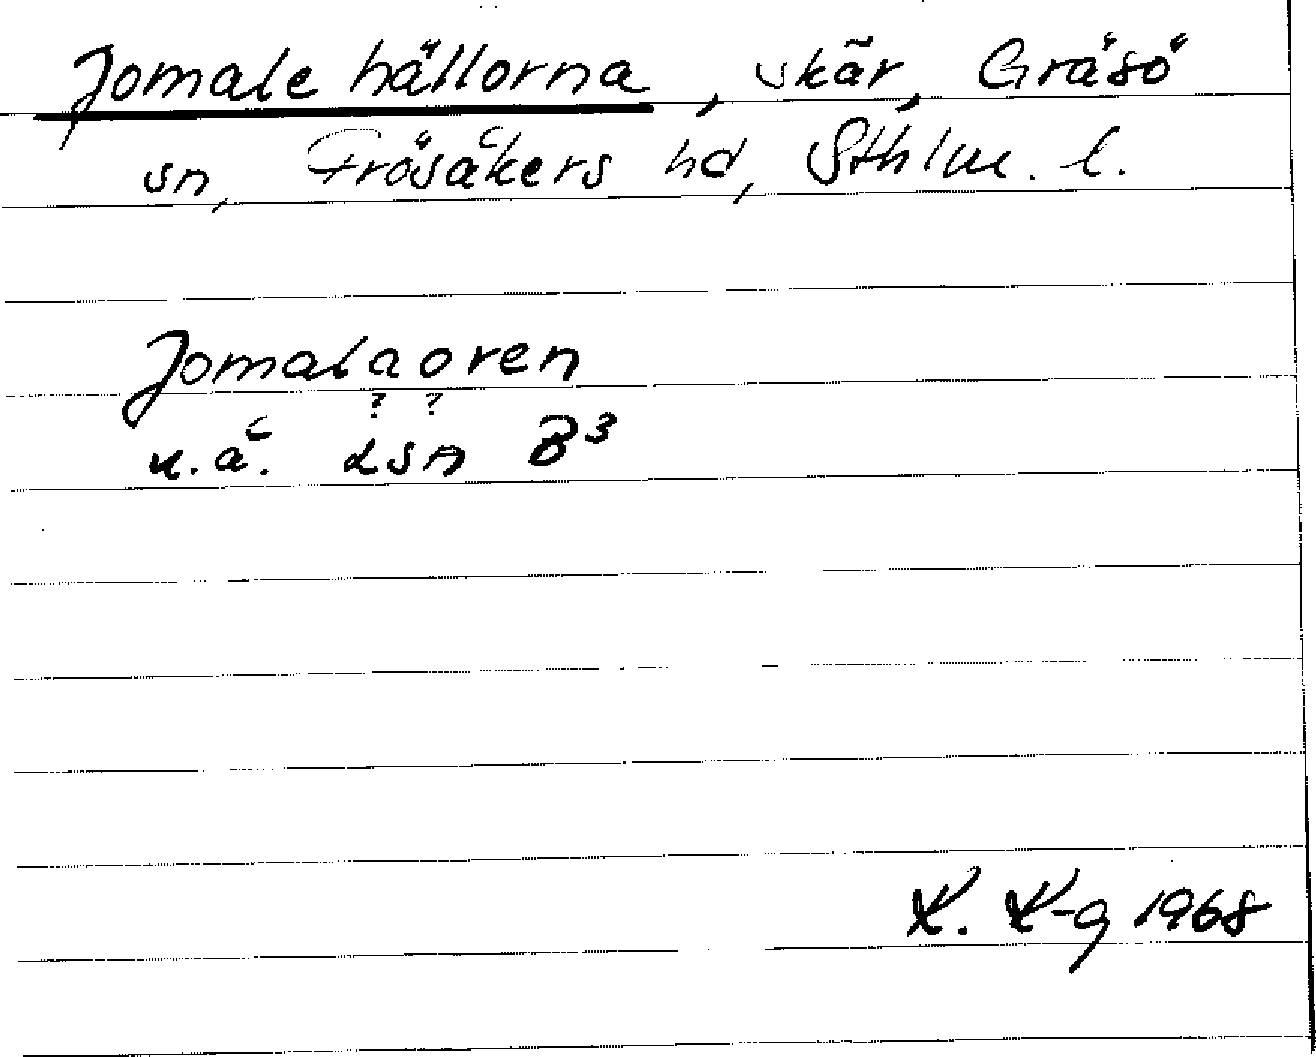 Jomale hällorna, skär, Gräsö
sn, Frösåkers hd, Sthlm. l.
Jomalaoren
? ?
u.å. LSA B³
K. K-g 1968